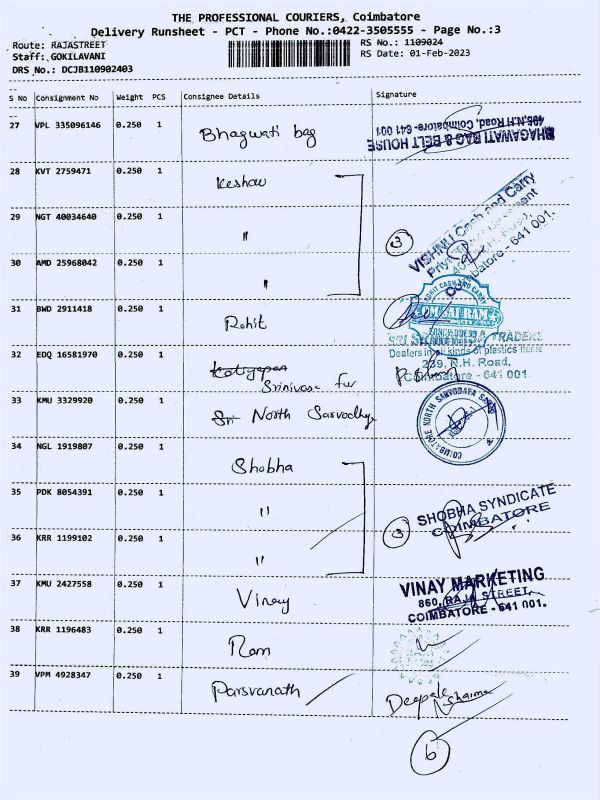 THE PROFESSIONAL COURIERS, Coimbatore
Delivery Runsheet - PCT - Phone No.:0422-3505555 - Page No.:3
Route: RAJASTREET RS No.: 1109024
Staff: GOKILAVANI RS Date: 01-Feb-2023
DRS No.: DCJB110902403
S No Consignment No Weight PCS Consignee Details Signature
27 VPL 335096146 0.250 1 Bhagwati bag
BHAGAWATI BAG & BELT HOUSE
495, N.H Road, Coimbatore- 641 001
28 KVT 2759471 0.250 1 Keshav
29 NGT 40034640 0.250 1 "
3
VISHNU Cash and Carry
Coimbatore - 641 001.
30 AMD 25968042 0.250 1 "
31 BWD 2911418 0.250 1 Rohit
TRADERS
Dealers in all kinds of plastics
239, N.H. Road,
Coimbatore - 641 001
32 EDQ 16581970 0.250 1
Srinivasa fur
33 KMU 3329920 0.250 1 Sri North Sarvodhya
COIMBATORE NORTH SARVODAYA
34 NGL 1919807 0.250 1 Shobha
35 PDK 8054391 0.250 1 "
3
SHOBHA SYNDICATE
COIMBATORE
36 KRR 1199102 0.250 1 "
37 KMU 2427558 0.250 1 Vinay
VINAY MARKETING
860, RAJA STREET,
COIMBATORE - 641 001.
38 KRR 1196483 0.250 1 Ram
39 VPM 4928347 0.250 1 Parsvanath
Deepak Sharma
6